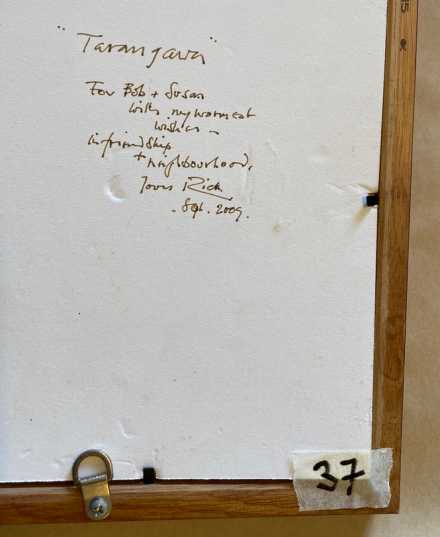 "Tarangawa"
For Bob + Susan
with my warmest
wishes –
in friendship
+ neighbourhood,
Yours Rick
. Sep. 2009.
37